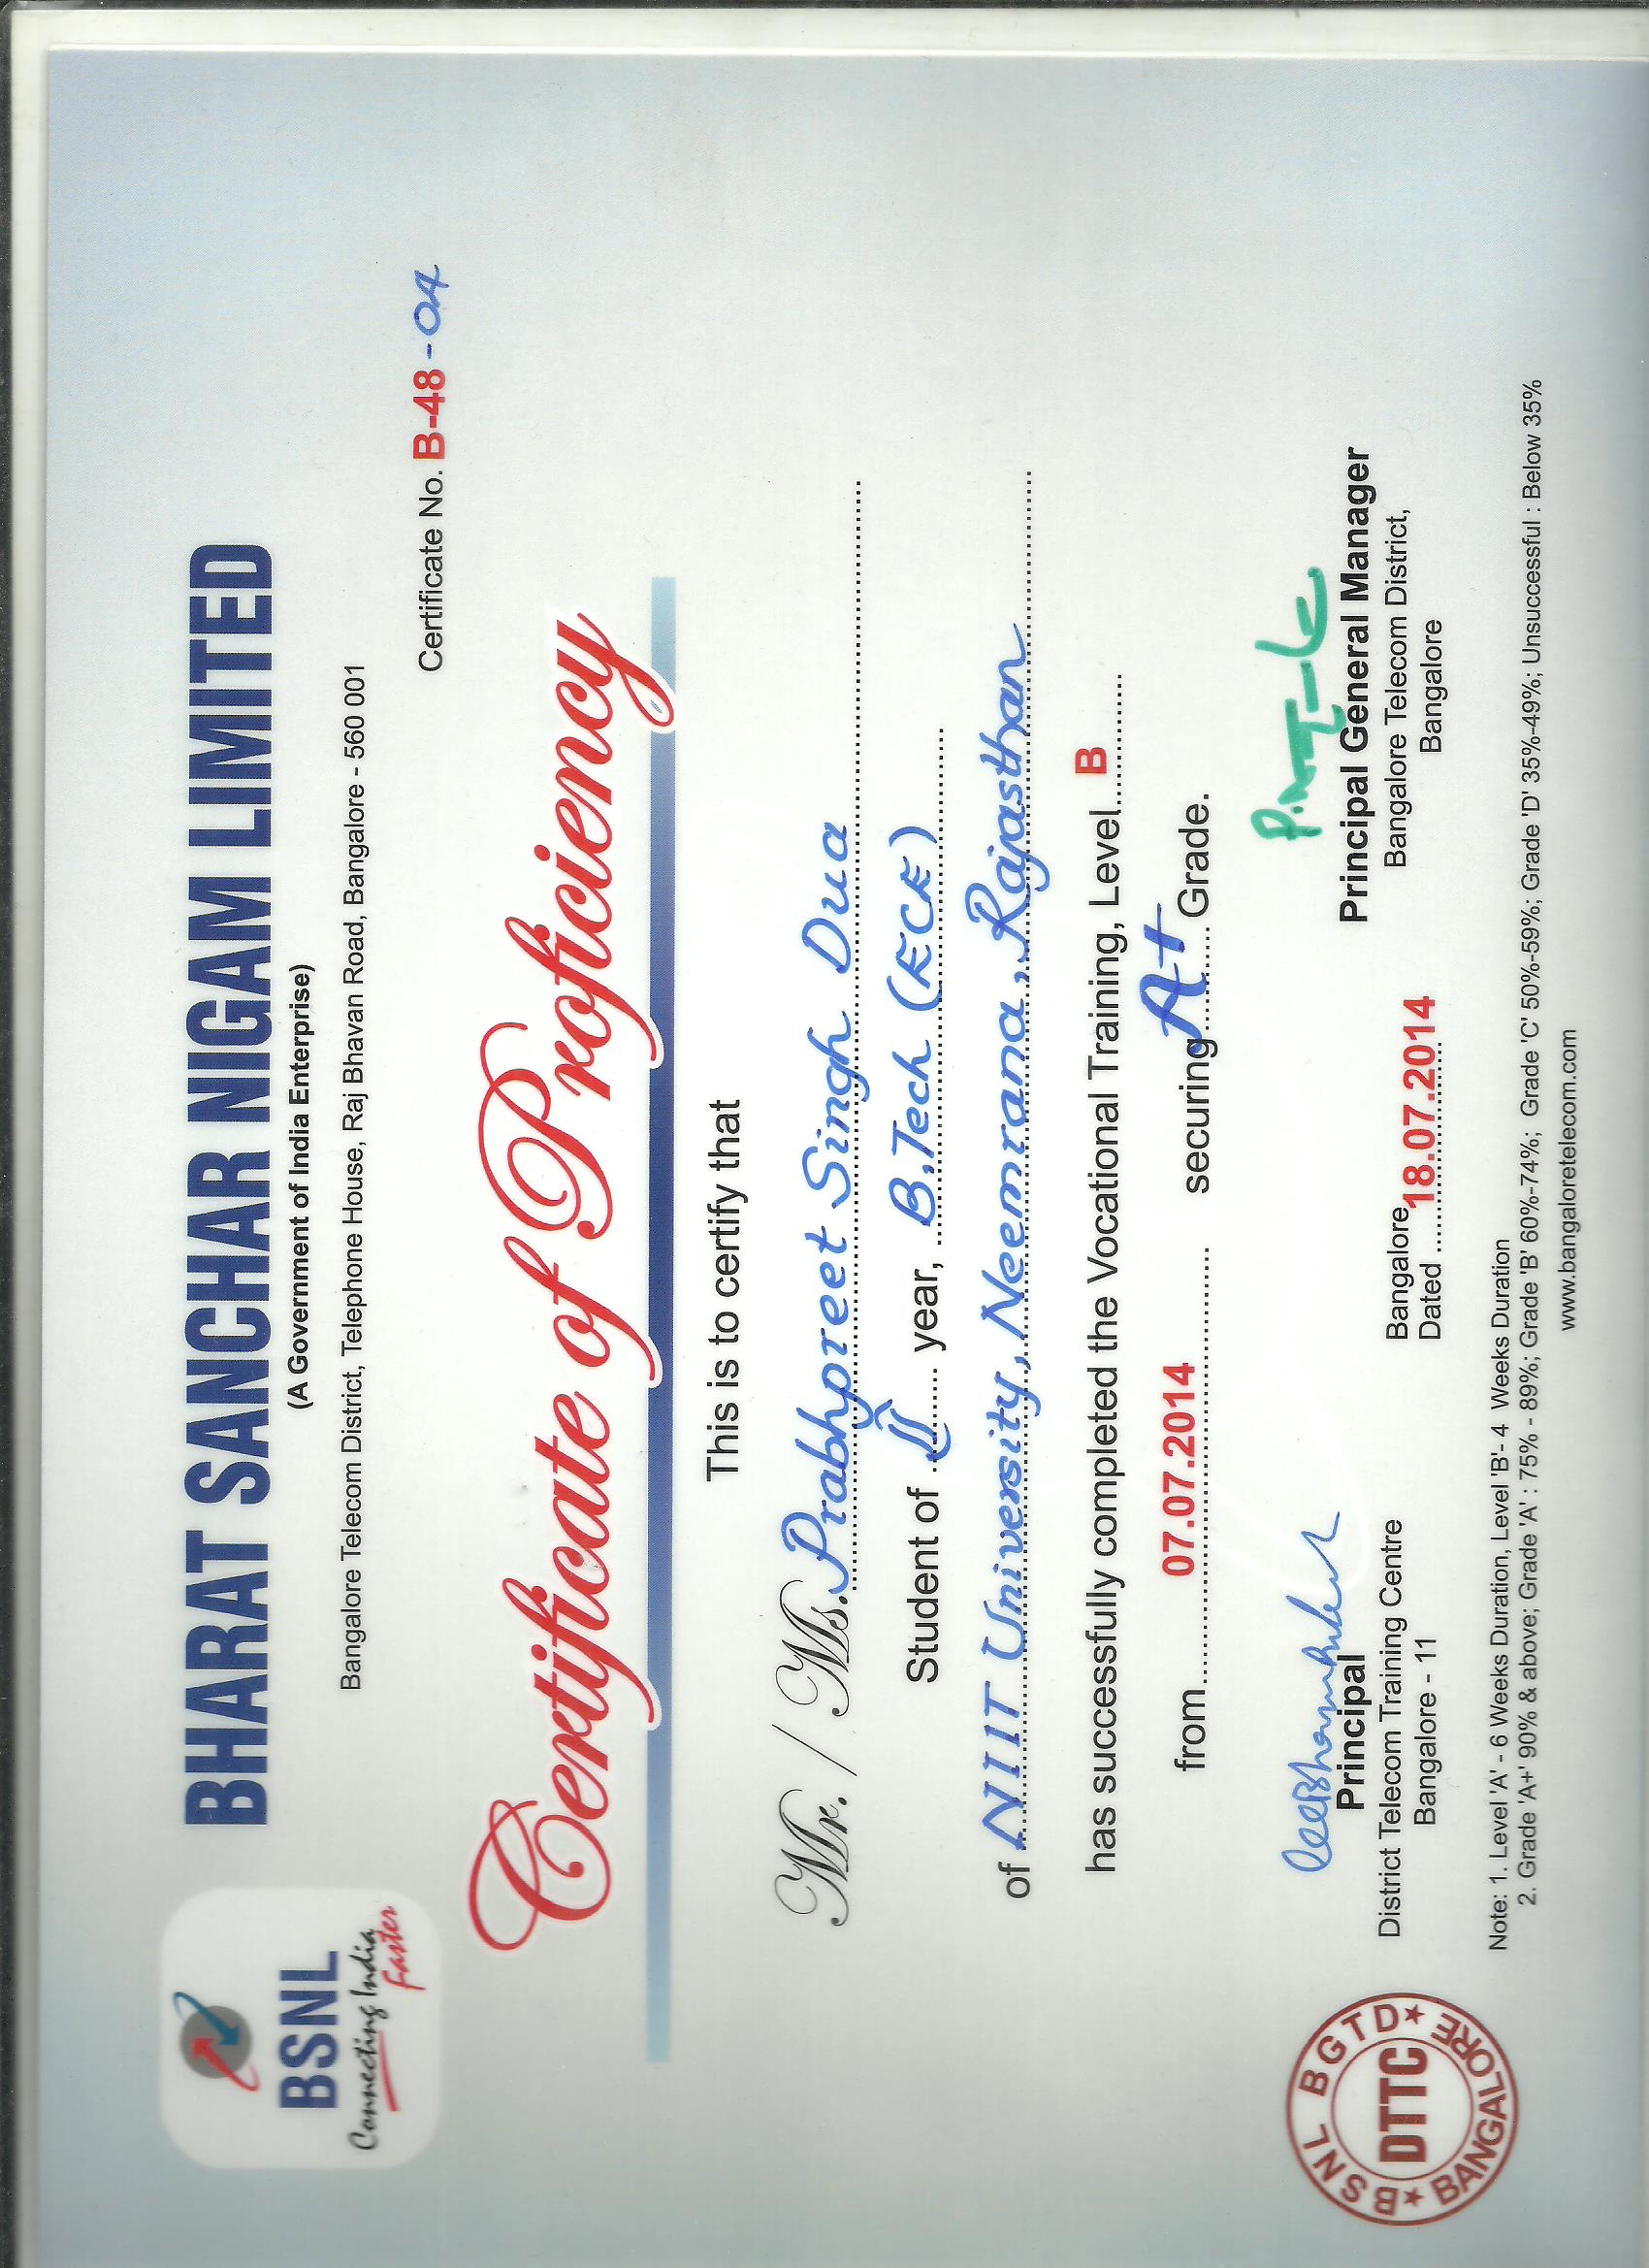 BSNL
Connecting India
faster
BHARAT SANCHAR NIGAM LIMITED
(A Government of India Enterprise)
Bangalore Telecom District, Telephone House, Raj Bhavan Road, Bangalore - 560 001
Certificate No. B-48 - 04
Certificate of Proficiency
This is to certify that
Mr. / Ms. Prabhpreet Singh Dua
Student of II year, B.Tech (ECE)
of NIIT University, Neemrana, Rajasthan
has successfully completed the Vocational Training, Level B
from 07.07.2014 securing A+ Grade.
Principal
District Telecom Training Centre
Bangalore - 11
Bangalore
Dated 18.07.2014
Principal General Manager
Bangalore Telecom District,
Bangalore
BSNL BGTD
DTTC
BANGALORE
Note: 1. Level 'A' - 6 Weeks Duration, Level 'B'- 4 Weeks Duration
2. Grade 'A+' 90% & above; Grade 'A' : 75% - 89%; Grade 'B' 60%-74%; Grade 'C' 50%-59%; Grade 'D' 35%-49%; Unsuccessful : Below 35%
www.bangaloretelecom.com